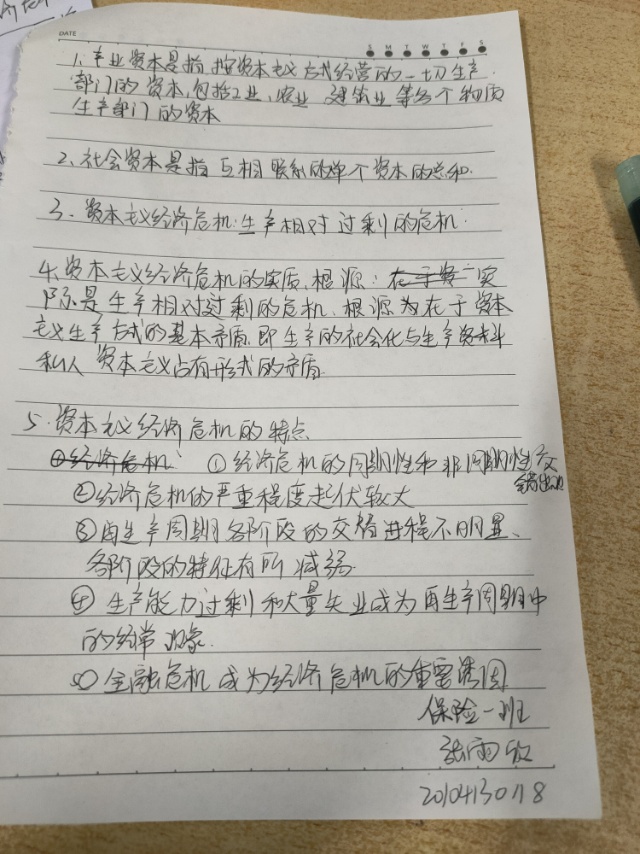 DATE
S M T W T F S
1. 产业资本是指按资本主义方式经营的一切生产
部门的资本,包括工业、农业、建筑业等各个物质
生产部门的资本
2、社会资本是指互相联系的单个资本的总和.
3. 资本主义经济危机:生产相对过剩的危机.
4.资本主义经济危机的实质、根源:在于资 实
际是生产相对过剩的危机.根源为在于资本
主义生产方式的基本矛盾.即生产的社会化与生产资料
私人资本主义占有形式的矛盾.
5.资本主义经济危机的特点
①经济危机 ①经济危机的周期性和非周期性交
错出现
②经济危机的严重程度起伏较大
③再生产周期各阶段的交替进程不明显、
各阶段的特征有所减弱.
④ 生产能力过剩和大量失业成为再生产周期中
的经常现象.
金融危机成为经济危机的重要诱因
保险一班
张雨
2010413018